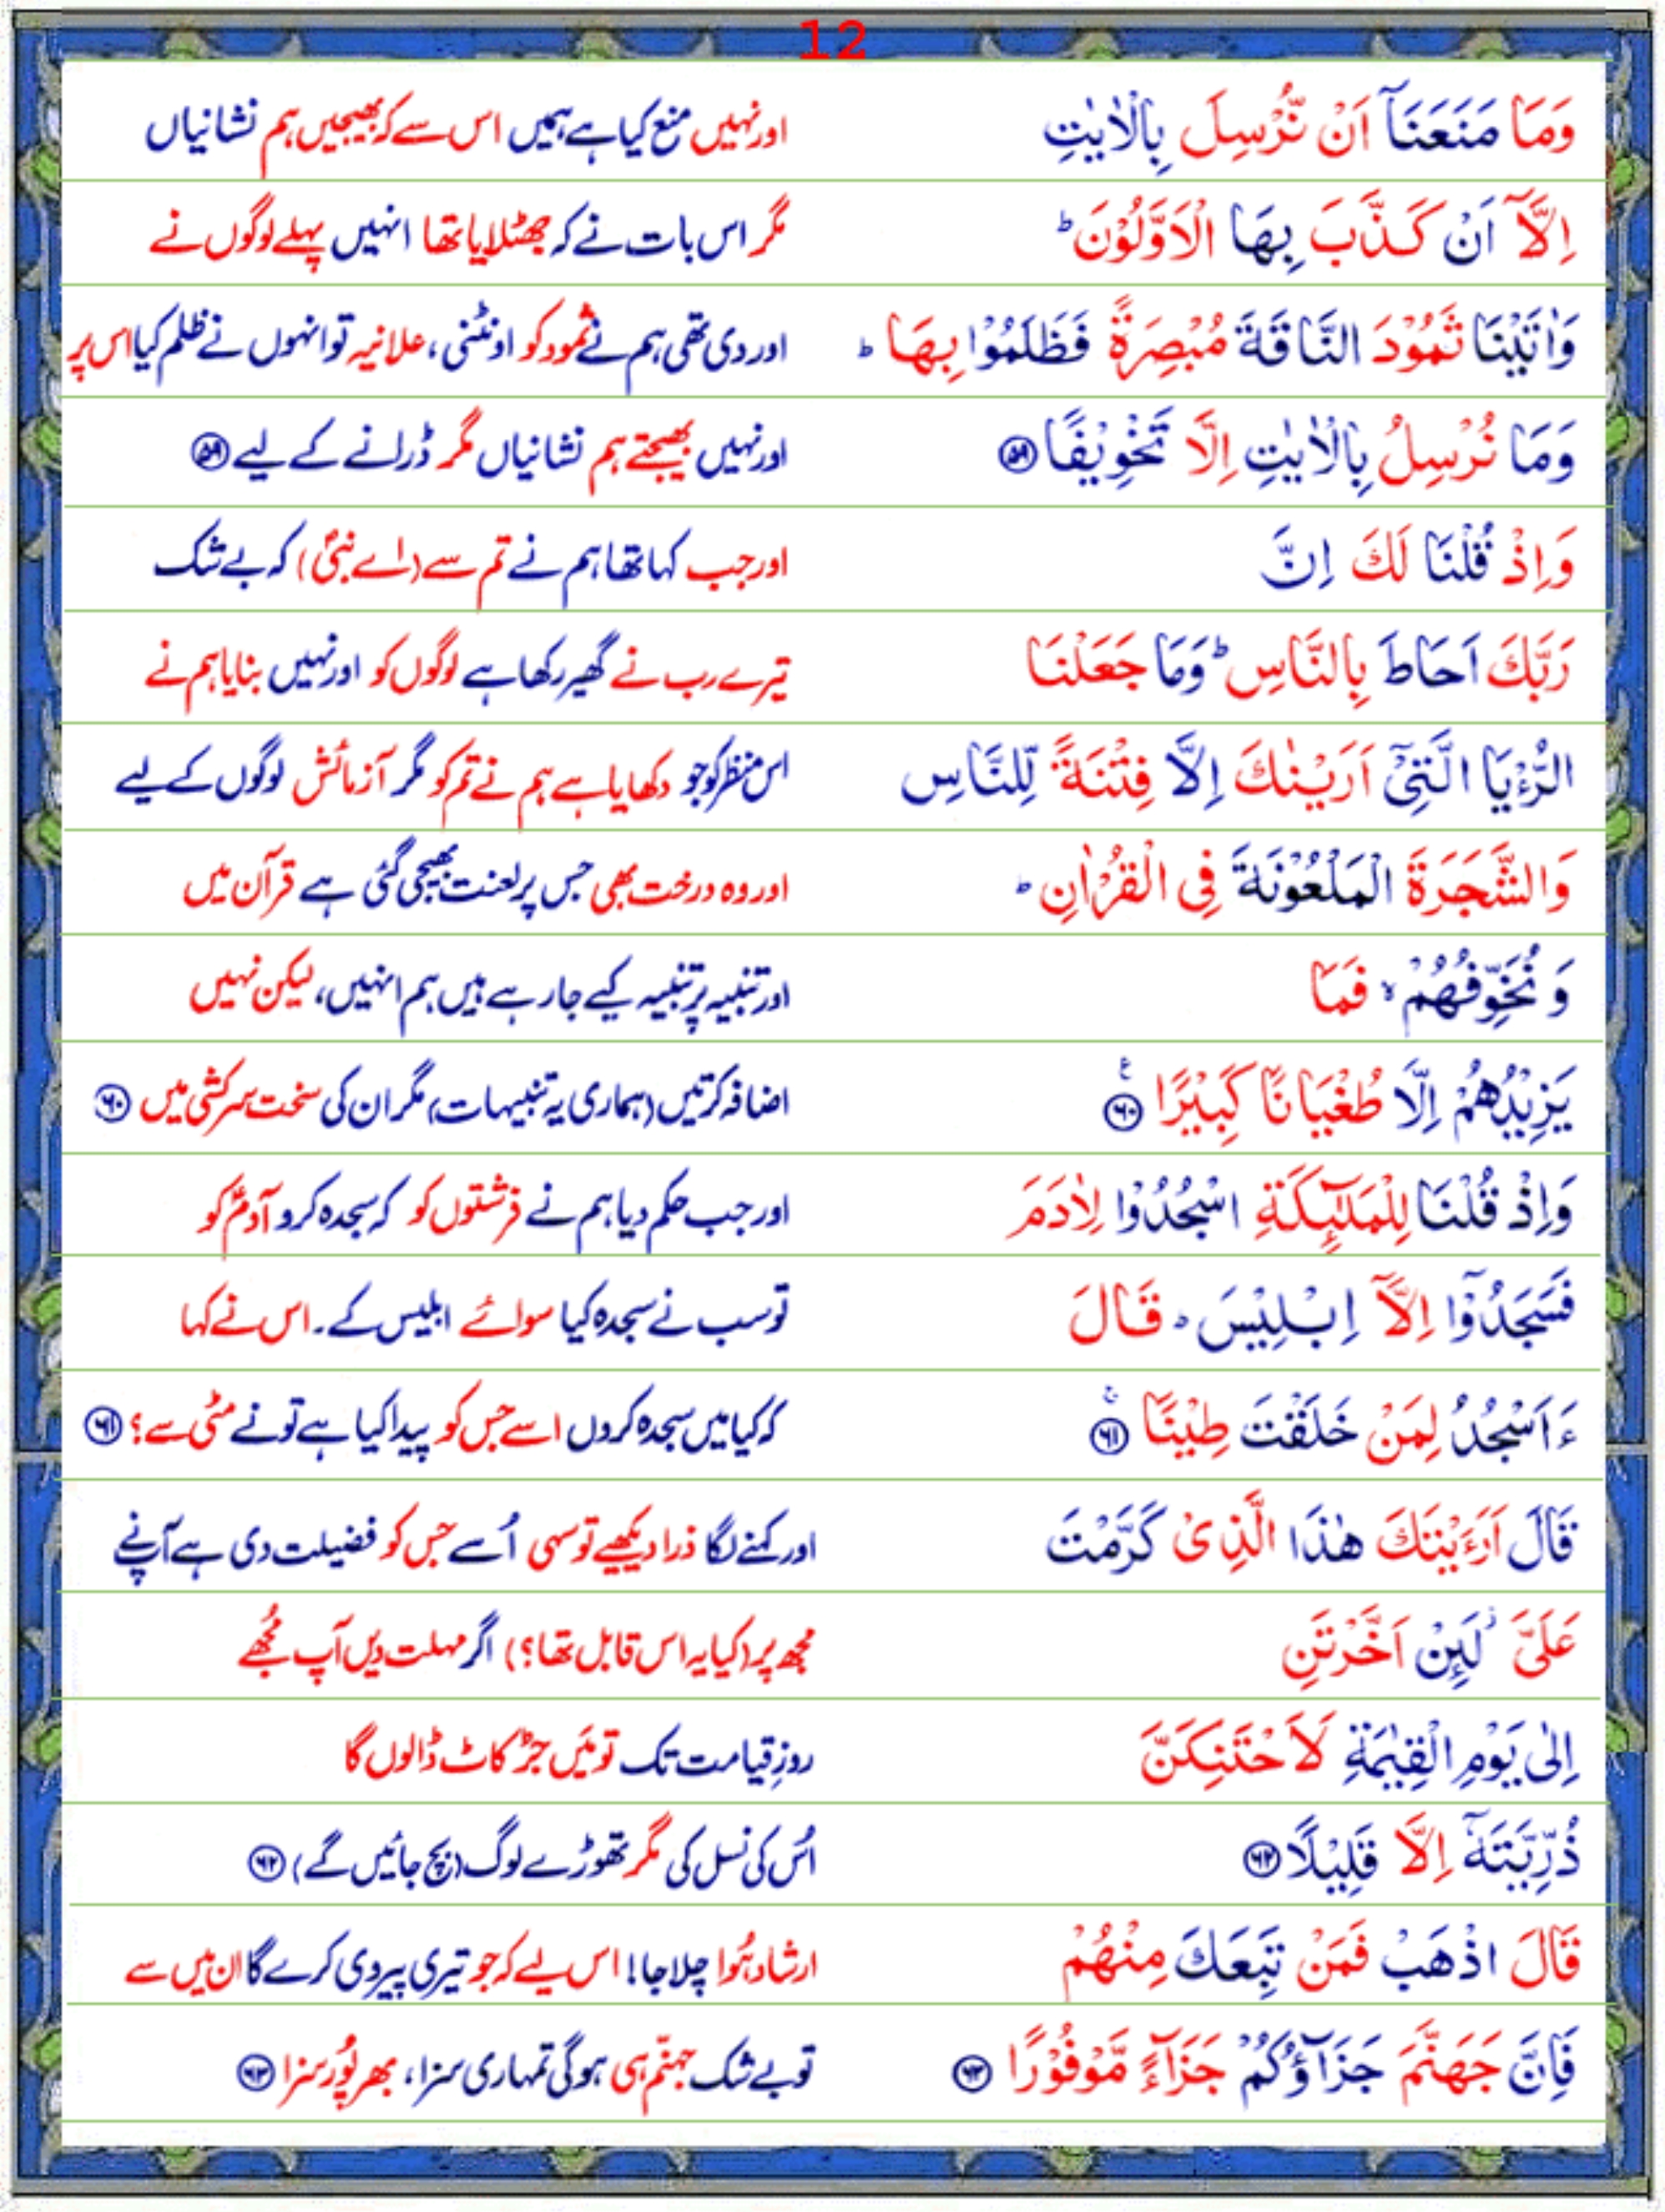 12
وَمَا مَنَعَنَآ اَنْ نُّرْسِلَ بِالْاٰيٰتِ اور نہیں منع کیا ہے ہمیں اس سے کہ بھیجیں ہم نشانیاں
اِلَّآ اَنْ كَذَّبَ بِهَا الْاَوَّلُوْنَ ؕ مگر اس بات نے کہ جھٹلایا تھا انہیں پہلے لوگوں نے
وَاٰتَيْنَا ثَمُوْدَ النَّاقَةَ مُبْصِرَةً فَظَلَمُوْا بِهَا ؕ اور دی تھی ہم نے ثمود کو اونٹنی، علانیہ تو انہوں نے ظلم کیا اس پر
وَمَا نُرْسِلُ بِالْاٰيٰتِ اِلَّا تَخْوِيْفًا ۵۹ اور نہیں بھیجتے ہم نشانیاں مگر ڈرانے کے لیے ۵۹
وَاِذْ قُلْنَا لَكَ اِنَّ اور جب کہا تھا ہم نے تم سے (اے نبیؐ) کہ بے شک
رَبَّكَ اَحَاطَ بِالنَّاسِ ؕ وَمَا جَعَلْنَا تیرے رب نے گھیر رکھا ہے لوگوں کو اور نہیں بنایا ہم نے
الرُّءْيَا الَّتِیْٓ اَرَيْنٰكَ اِلَّا فِتْنَةً لِّلنَّاسِ اس منظر کو جو دکھایا ہے ہم نے تم کو مگر آزمائش لوگوں کے لیے
وَالشَّجَرَةَ الْمَلْعُوْنَةَ فِی الْقُرْاٰنِ ؕ اور وہ درخت بھی جس پر لعنت بھیجی گئی ہے قرآن میں
وَ نُخَوِّفُهُمْ ۙ فَمَا اور تنبیہ پر تنبیہ کیے جا رہے ہیں ہم انہیں، لیکن نہیں
يَزِيْدُهُمْ اِلَّا طُغْيَانًا كَبِيْرًا ۶۰ ع اضافہ کرتیں (ہماری یہ تنبیہات) مگر ان کی سخت سرکشی میں ۶۰
وَاِذْ قُلْنَا لِلْمَلٰٓئِكَةِ اسْجُدُوْا لِاٰدَمَ اور جب حکم دیا ہم نے فرشتوں کو کہ سجدہ کرو آدمؑ کو
فَسَجَدُوْٓا اِلَّآ اِبْلِيْسَ ؕ قَالَ تو سب نے سجدہ کیا سوائے ابلیس کے۔ اس نے کہا
ءَاَسْجُدُ لِمَنْ خَلَقْتَ طِيْنًا ۶۱ کہ کیا میں سجدہ کروں اسے جس کو پیدا کیا ہے تو نے مٹی سے؟ ۶۱
قَالَ اَرَءَيْتَكَ هٰذَا الَّذِیْ كَرَّمْتَ اور کہنے لگا ذرا دیکھیے تو سہی اُسے جس کو فضیلت دی ہے آپنے
عَلَیَّ ؗ لَئِنْ اَخَّرْتَنِ مجھ پر (کیا یہ اس قابل تھا؟) اگر مہلت دیں آپ مُجھے
اِلٰى يَوْمِ الْقِيٰمَةِ لَاَحْتَنِكَنَّ روزِ قیامت تک تو مَیں جڑ کاٹ ڈالوں گا
ذُرِّيَّتَهٗٓ اِلَّا قَلِيْلًا ۶۲ اُس کی نسل کی مگر تھوڑے لوگ (بچ جائیں گے) ۶۲
قَالَ اذْهَبْ فَمَنْ تَبِعَكَ مِنْهُمْ ارشاد ہُوا چلا جا! اس لیے کہ جو تیری پیروی کرے گا ان میں سے
فَاِنَّ جَهَنَّمَ جَزَآؤُكُمْ جَزَآءً مَّوْفُوْرًا ۶۳ تو بے شک جہنّم ہی ہوگی تمہاری سزا، بھر پُور سزا ۶۳